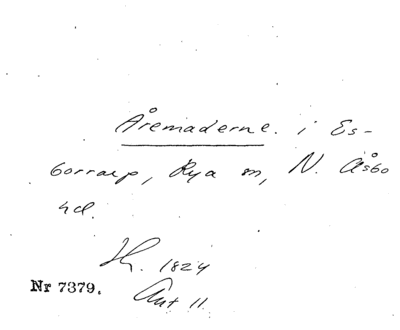 Åremaderne. i Es-
borrarp, Rya m, N. Åsbo
hd.
H. 1824
Nr 7379.
Akt 11.